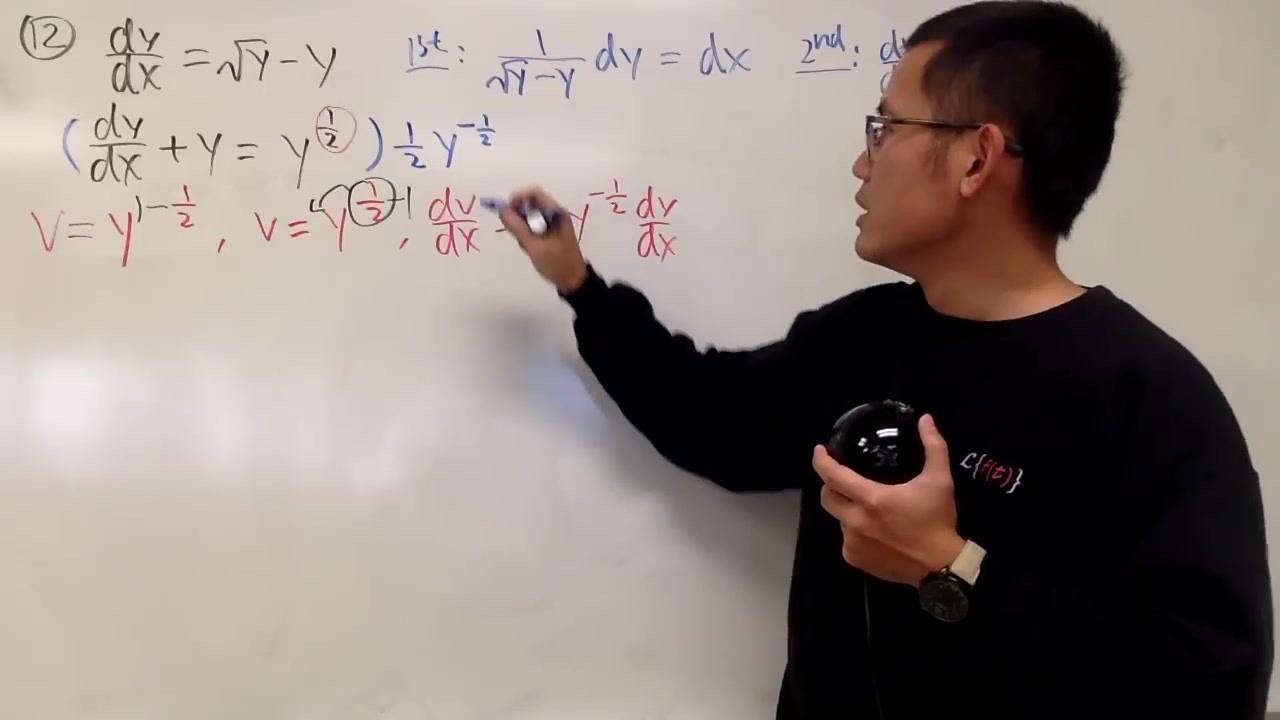 12 dy/dx = √y - y 1st: 1/(√y - y) dy = dx 2nd:
(dy/dx + y = y^(1/2)) 1/2 y^(-1/2)
v = y^(1-1/2), v = y^(1/2) -1, dv/dx y^(-1/2) dy/dx
L{f(t)}